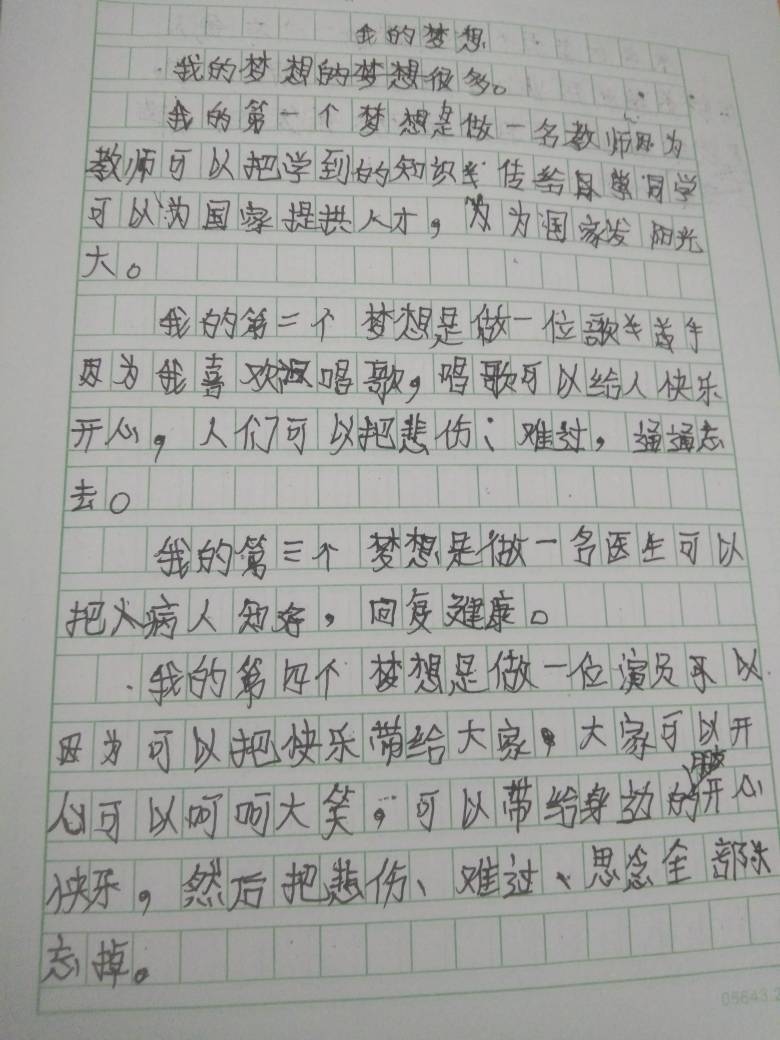 我的梦想
我的梦想的梦想很多。
我的第一个梦想是做一名教师因为
教师可以把学到的知识传给同学
可以为国家提拱人才，为国家发阳光
大。
我的第二个梦想是做一位歌手
因为我喜欢唱歌，唱歌可以给人快乐
开心，人们可以把悲伤、难过，通通忘
去。
我的第三个梦想是做一名医生可以
把病人知好，回复健康。
我的第四个梦想是做一位演员
因为可以把快乐带给大家，大家可以开
心可以呵呵大笑，可以带给身边的朋友开心
快乐，然后把悲伤、难过、思念全部
忘掉。
05643.2